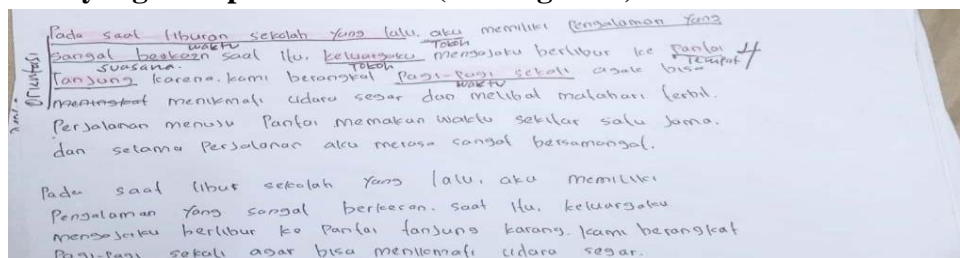 Pada saat liburan sekolah yang lalu, aku memiliki Pengalaman yang
waktu Tokoh
Sangat beekazn saat Itu, keluargaku mengajaku berlibur ke Pantai 4
suasana. Tokoh Tempat
Tanjung karena. kami berangkat Pagi-Pagi sekali agale bisa
waktu
menikmati udara segar dan melibal matahari terbit.
Orientasi
Perjalanan menuju Pantai Memakan waktu sekitar satu Jama.
dan selama Perjalanan aku merasa sangat bersamangat.
Pada saat libur sekolah Yang lalu, aku memiliki
Pengalaman Yang sangat berkecan. saat Itu, keluargaku
mengajakku berlibur ke Pantai tanjung karang. kami berangkat
Pagi-Pagi sekali agar bisa menikmati udara segar.